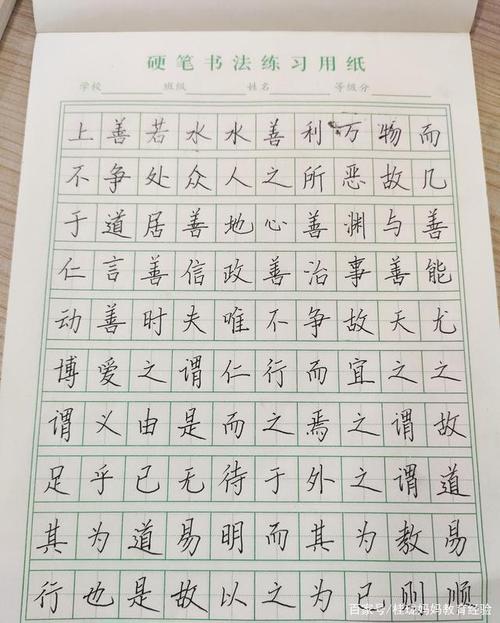 硬笔书法练习用纸
学校 班级 姓名 等级分
上善若水水善利万物而
不争处众人之所恶故几
于道居善地心善渊与善
仁言善信政善治事善能
动善时夫唯不争故天尤
博爱之谓仁行而宜之之
谓义由是而之焉之谓故
足乎已无待于外之谓道
其为道易明而其为教易
行也是故以之为已则顺
百家号/桂珑妈妈教育经验